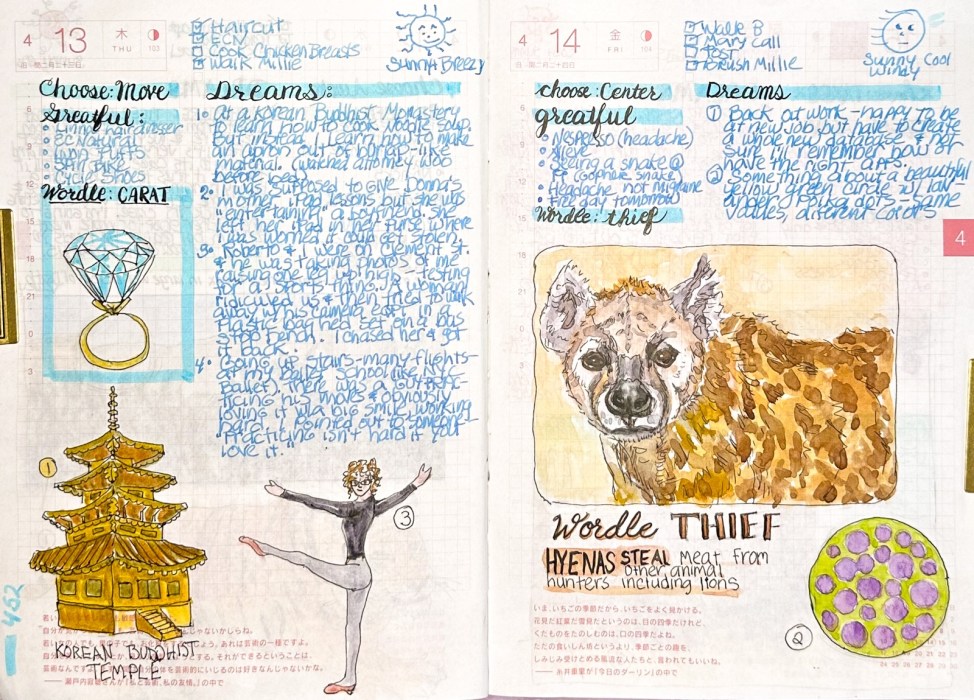 4 13 木 THU
Haircut
ECN
Cook Chicken Breasts
Walk Millie
Sunny Breezy
Choose: Move
Greatful:
Hairdresser
EC Natural
Gifts
Bike
Cycle Shoes
Wordle: CARAT
Dreams:
1. At a Korean Buddhist Monastery
to learn how to cook noodle soup.
But instead I learn how to make
an apron out of burlap-like
material. (Watched Attorney Woo
before bed)
2. I was supposed to give Donna's
mother iPad lessons but she was
entertaining a boyfriend. She
left her iPad in her purse where
I was worried it could get stolen.
3. Roberto & I were on the street
& he was taking photos of me
raising one leg up high - testing
for a sports thing. A woman
ridiculed us & then tried to walk
away w/ his camera left in a
plastic bag he'd set on a bus
stop bench. I chased her & got
it back.
4. Going up stairs - many flights -
at my (dance school like
Ballet). There was a guy prac-
ticing his moves & obviously
loving it w/a big smile, working
hard. I pointed out to someone
"Practicing isn't hard if you
love it."
1
KOREAN BUDDHIST
TEMPLE
3
462
4 14 金 FRI
Walk B
Mary Call
Post
Brush Millie
Sunny Cool
Windy
Choose: Center
greatful
Nespresso (headache)
Seeing a snake @
(gopher snake)
Headache not migraine
Free day tomorrow
Wordle: thief
Dreams
1 Back at work - happy to be
at new job, but have to create
a whole new database & not
sure I remember how or
have the right
2 Something about a beautiful
yellow green circle w/ lav-
ander polka dots - same
values, different colors
4
Wordle THIEF
HYENAS STEAL meat from
other animal
hunters including lions
2
いま、いちごの季節だから、いちごをよく見かける。
花見だ紅葉だ雪見だというのは、目の四季だけれど、
くだものをたのしむのは、口の四季だよね。
ただの食いしん坊というより、季節ごとの趣を、
しみじみ受けとめる風流な人たちと、言われてもいいね。
── 糸井重里が『今日のダーリン』の中で